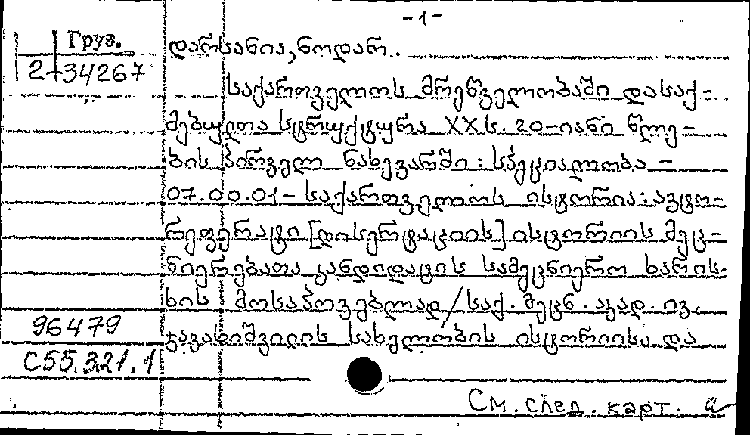 -1-
Груз.
2-34267
დარსანია, ნოდარ.
საქართველოს მრეწველობაში დასაქ-
მებულთა სტრუქტურა XX ს. 20-იანი წლე-
ბის პირველ ნახევარში : სპეციალობა -
07.00.01 - საქართველოს ისტორია : ავტო-
რეფერატი [დისერტაციის] ისტორიის მეც-
ნიერებათა კანდიდატის სამეცნიერო ხარის-
ხის მოსაპოვებლად / საქ. მეცნ. აკად. ივ.
96479
ჯავახიშვილის სახელობის ისტორიისა და
С55.321.1
См. след. карт.